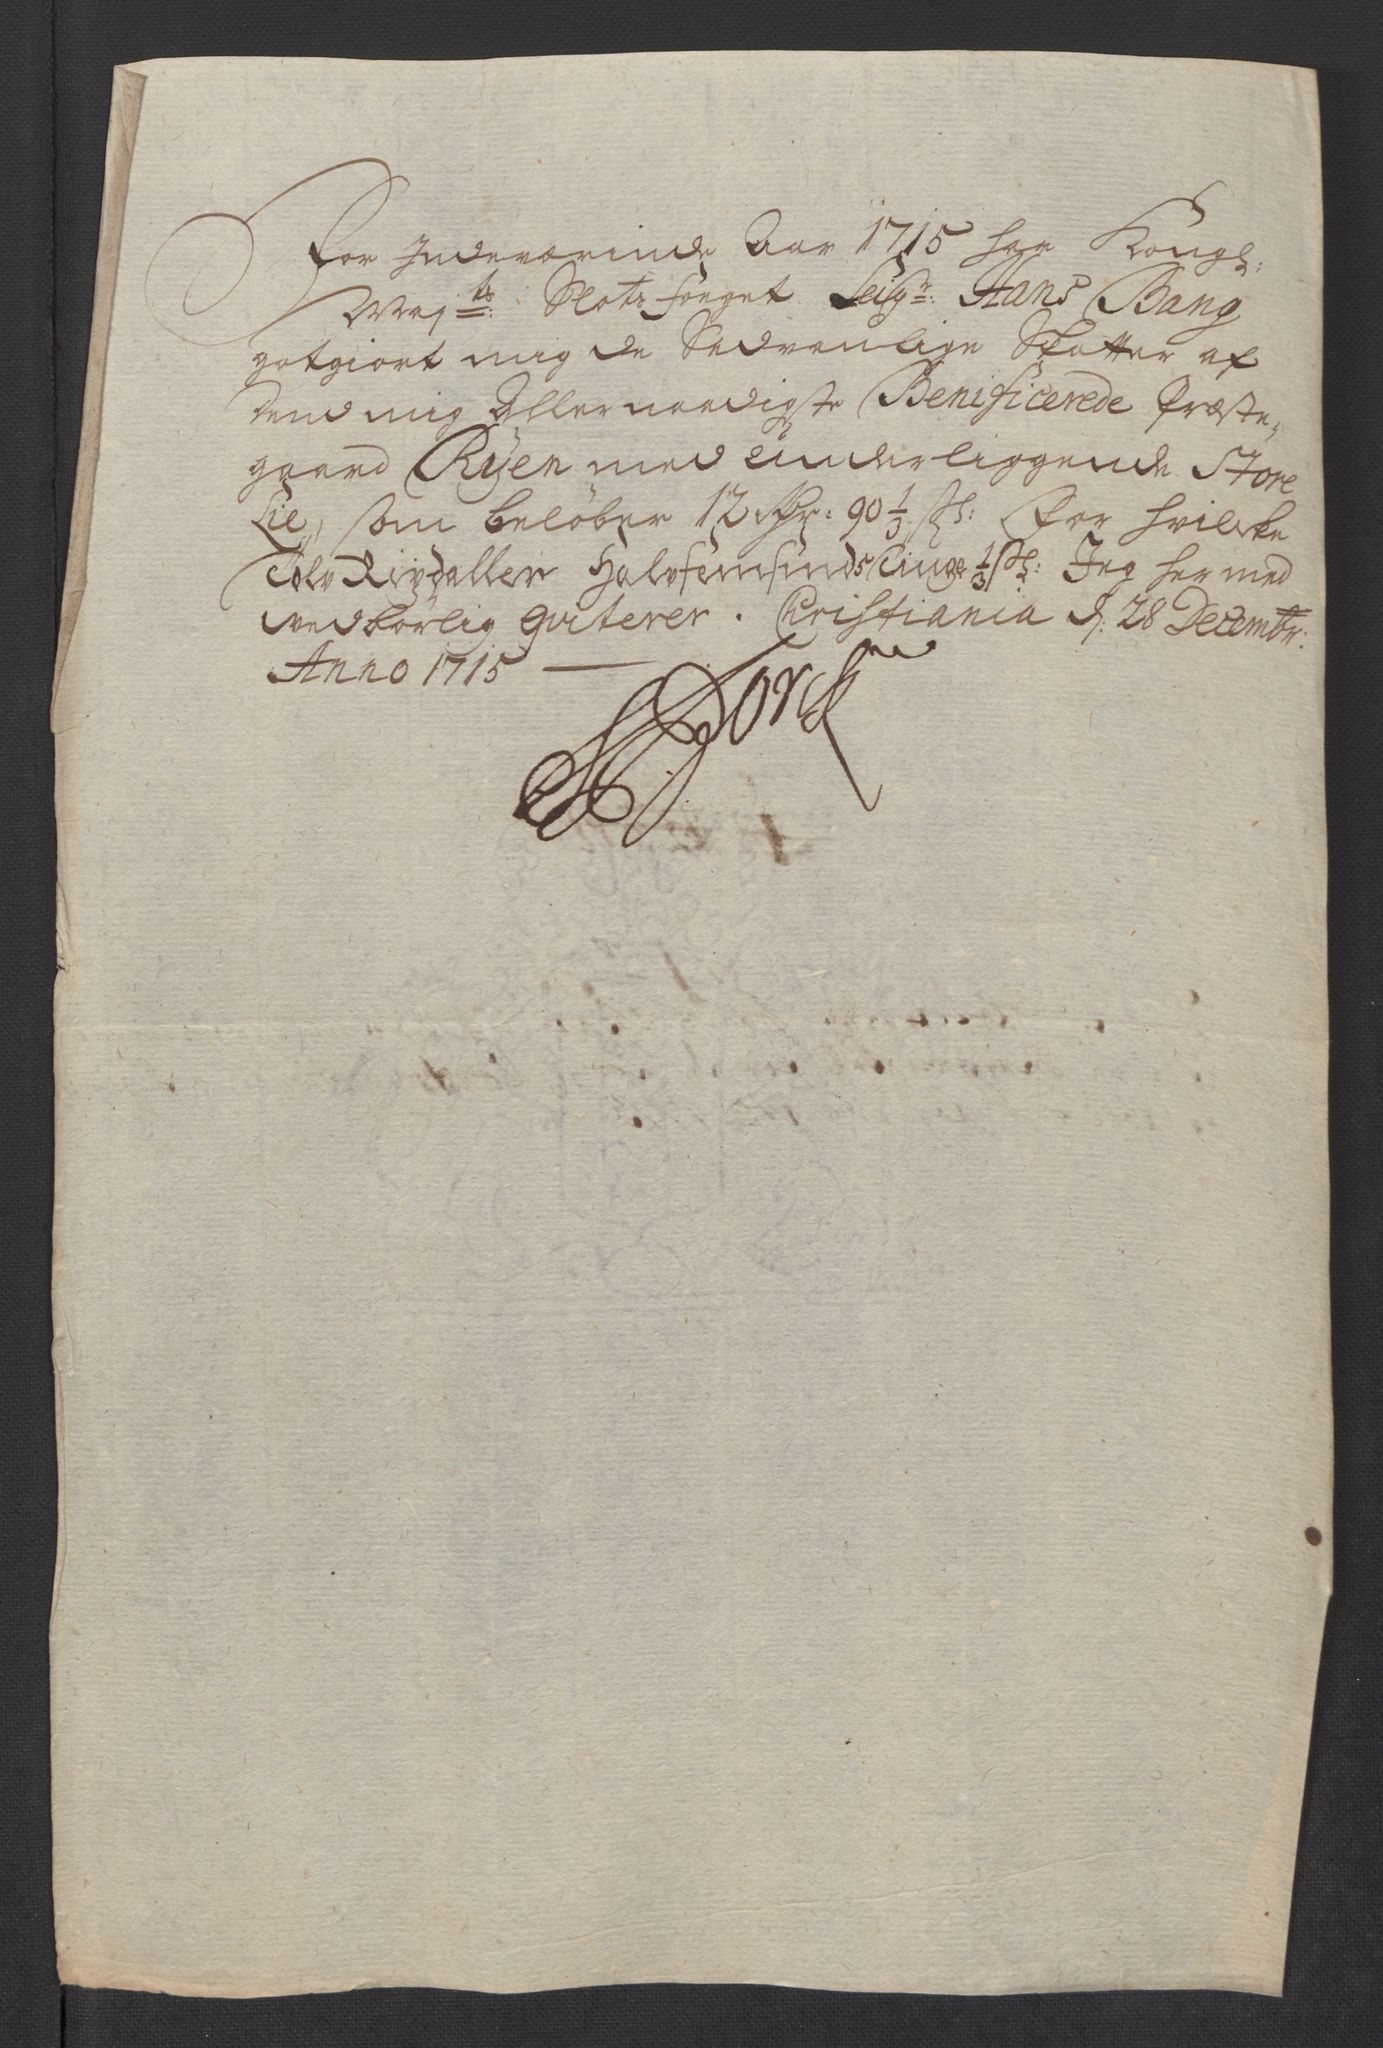 For Indeværinde Aar 1715 har Kongl:
Mayts: Slotsfoaget Seigr: Hans Bang
gotgiort mig de Sedvanlige Skatter af
dend mig Allernaadigste Benificerede Præste,
gaard Ryen med underliggende Store
Lie, som beløber 12 Rdr: 90 1/3 sk: For hvilcke
Tolv Rixdaller Halvfemsinds Tiuge 1/3 sk: Jeg her med
vedbørlig Qviterer. Christiania d: 28 Decembr:
Anno 1715